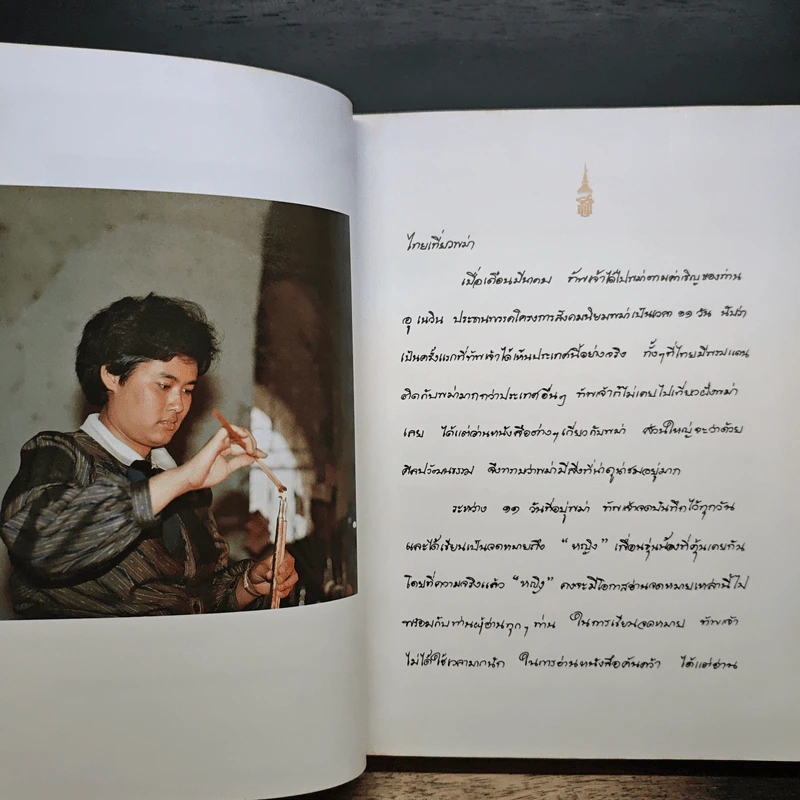 ไทยเที่ยวพม่า
เมื่อเดือนมีนาคม ข้าพเจ้าได้ไปพม่าตามคำเชิญของท่าน
อู เนวิน ประธานพรรคโครงการสังคมนิยมพม่าเป็นเวลา ๑๑ วัน นับว่า
เป็นครั้งแรกที่ข้าพเจ้าได้เห็นประเทศนี้อย่างจริง ทั้งๆที่ไทยมีพรมแดน
ติดกับพม่ามากกว่าประเทศอื่นๆ ข้าพเจ้าก็ไม่เคยไปเที่ยวฝั่งพม่า
เลย ได้แต่อ่านหนังสือต่างๆเกี่ยวกับพม่า ส่วนใหญ่จะว่าด้วย
ศิลปวัฒนธรรม จึงทราบว่าพม่ามีสิ่งที่น่าดูน่าชมอยู่มาก
ระหว่าง ๑๑ วันที่อยู่พม่า ข้าพเจ้าจดบันทึกไว้ทุกวัน
และได้เขียนเป็นจดหมายถึง “หญิง” เพื่อนรุ่นน้องที่คุ้นเคยกัน
โดยที่ความจริงแล้ว “หญิง” คงจะมีโอกาสอ่านจดหมายเหล่านี้ไป
พร้อมกับท่านผู้อ่านทุกๆท่าน ในการเขียนจดหมาย ข้าพเจ้า
ไม่ได้ใช้เวลามากนัก ในการอ่านหนังสือค้นคว้า ได้แต่อ่าน